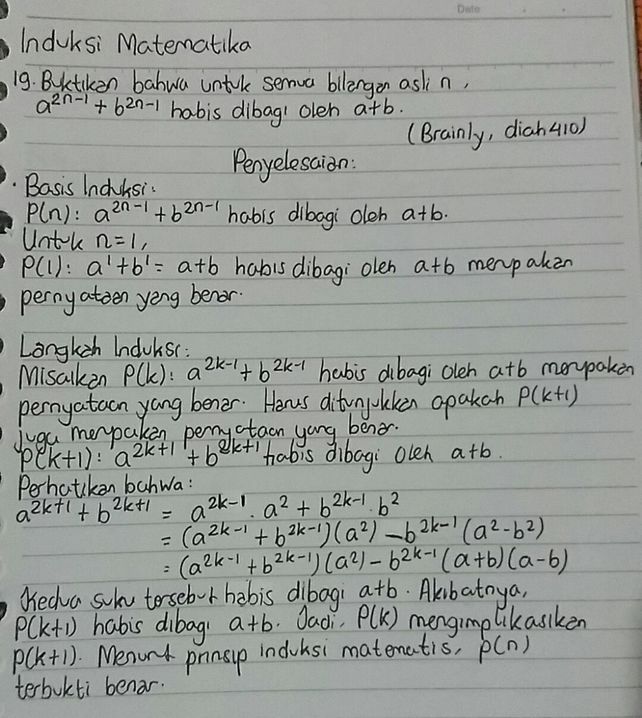 Date
Induksi Matematika
19. Buktikan bahwa untuk semua bilangan asli n,
a²ⁿ⁻¹ + b²ⁿ⁻¹ habis dibagi oleh a+b.
(Brainly, diah410)
Penyelesaian:
· Basis Induksi:
P(n): a²ⁿ⁻¹ + b²ⁿ⁻¹ habis dibagi oleh a+b.
Untuk n=1,
P(1): a¹ + b¹ = a+b habis dibagi oleh a+b merupakan
pernyataan yang benar.
Langkah Induksi:
Misalkan P(k): a²ᵏ⁻¹ + b²ᵏ⁻¹ habis dibagi oleh a+b merupakan
pernyataan yang benar. Harus ditunjukkan apakah P(k+1)
juga merupakan pernyataan yang benar.
P(k+1): a²ᵏ⁺¹ + b²ᵏ⁺¹ habis dibagi oleh a+b.
Perhatikan bahwa:
a²ᵏ⁺¹ + b²ᵏ⁺¹ = a²ᵏ⁻¹. a² + b²ᵏ⁻¹. b²
= (a²ᵏ⁻¹ + b²ᵏ⁻¹)(a²) – b²ᵏ⁻¹ (a² – b²)
= (a²ᵏ⁻¹ + b²ᵏ⁻¹)(a²) – b²ᵏ⁻¹ (a+b)(a-b)
Kedua suku tersebut habis dibagi a+b. Akibatnya,
P(k+1) habis dibagi a+b. Jadi, P(k) mengimplikasikan
P(k+1). Menurut prinsip induksi matematis, P(n)
terbukti benar.